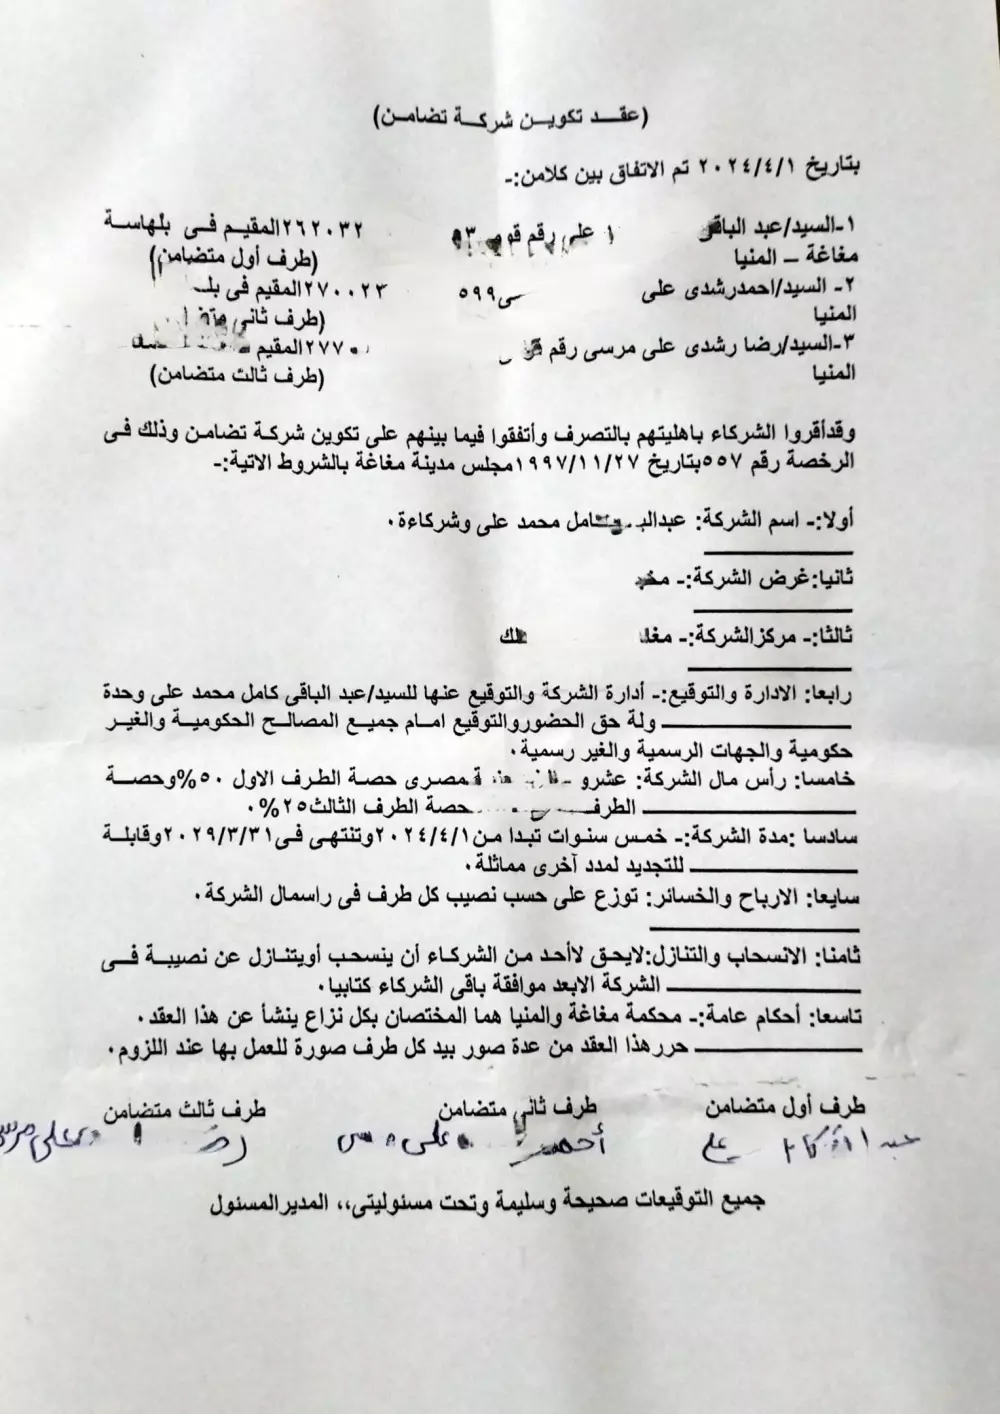 (عقد تكوين شركة تضامن)
بتاريخ ٢٠٢٤/٤/١ تم الاتفاق بين كلامن:-
١-السيد/عبد الباقى على رقم قو ٢٦٢٠٣٢المقيم فى بلهاسة
مغاغة – المنيا (طرف أول متضامن)
٢- السيد/احمدرشدى على ٥٩٩ ٢٧٠٠٢٣المقيم فى
المنيا (طرف ثانى
٣-السيد/رضا رشدى على مرسى رقم ٢٧٧٠ المقيم
المنيا (طرف ثالث متضامن)
وقدأقروا الشركاء باهليتهم بالتصرف وأتفقوا فيما بينهم على تكوين شركة تضامن وذلك فى
الرخصة رقم ٥٥٧بتاريخ ١٩٩٧/١١/٢٧مجلس مدينة مغاغة بالشروط الاتية:-
أولا:- اسم الشركة: محمد على وشركاءة٠
ثانيا:غرض الشركة:-
ثالثا:- مركزالشركة:-
رابعا: الادارة والتوقيع:- أدارة الشركة والتوقيع عنها للسيد/عبد الباقى كامل محمد على وحدة
ولة حق الحضوروالتوقيع امام جميع المصالح الحكومية والغير
حكومية والجهات الرسمية والغير رسمية٠
خامسا: رأس مال الشركة: مصرى حصة الطرف الاول ٥٠%وحصة
الطرف حصة الطرف الثالث٢٥%٠
سادسا :مدة الشركة:- خمس سنوات تبدا من٢٠٢٤/٤/١وتنتهى فى٢٠٢٩/٣/٣١وقابلة
للتجديد لمدد آخرى مماثلة٠
سايعا: الارباح والخسائر: توزع على حسب نصيب كل طرف فى راسمال الشركة٠
ثامنا: الانسحاب والتنازل:لايحق لاأحد من الشركاء أن ينسحب أويتنازل عن نصيبة فى
الشركة الابعد موافقة باقى الشركاء كتابيا٠
تاسعا: أحكام عامة:- محكمة مغاغة والمنيا هما المختصان بكل نزاع ينشأ عن هذا العقد٠
حررهذا العقد من عدة صور بيد كل طرف صورة للعمل بها عند اللزوم٠
طرف أول متضامن طرف ثانى متضامن طرف ثالث متضامن
على أحمد على
جميع التوقيعات صحيحة وسليمة وتحت مسئوليتى،، المديرالمسئول